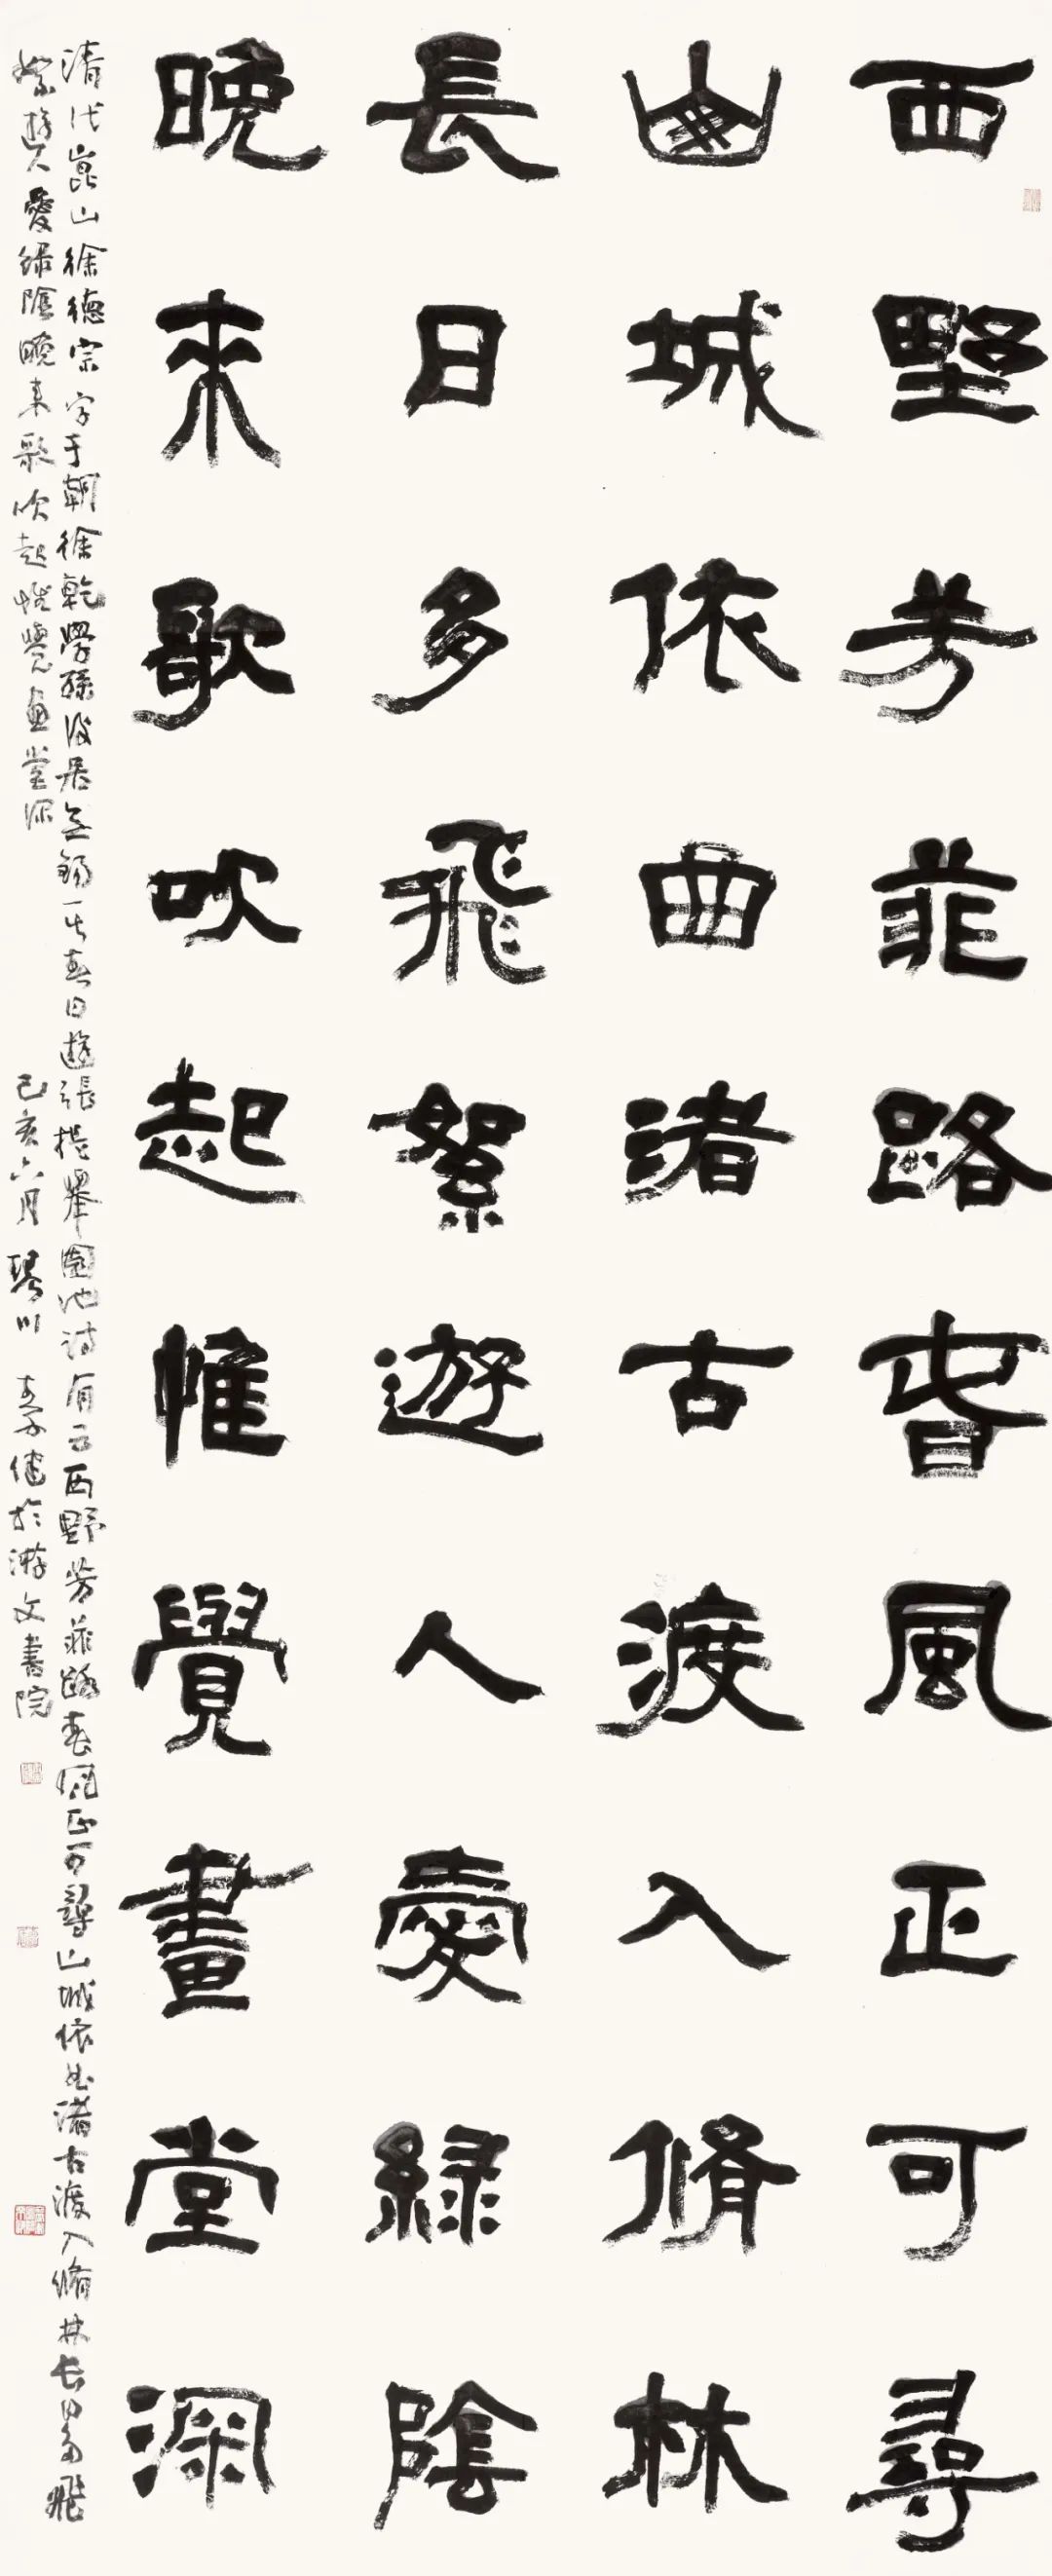 西野芳菲路春風正可尋
山城依曲渚古渡入脩林
長日多飛絮遊人愛綠陰
晚來歌吹起惟覺畫堂深
清代崑山徐德宗字于朝徐乾學孫後居無錫一其春日遊張提舉園池詩有云西野芳菲路春風正可尋山城依曲渚古渡入脩林長日多飛
絮遊人愛綠陰晚來歌吹起惟覺畫堂深
己亥六月琴川李健於游文書院